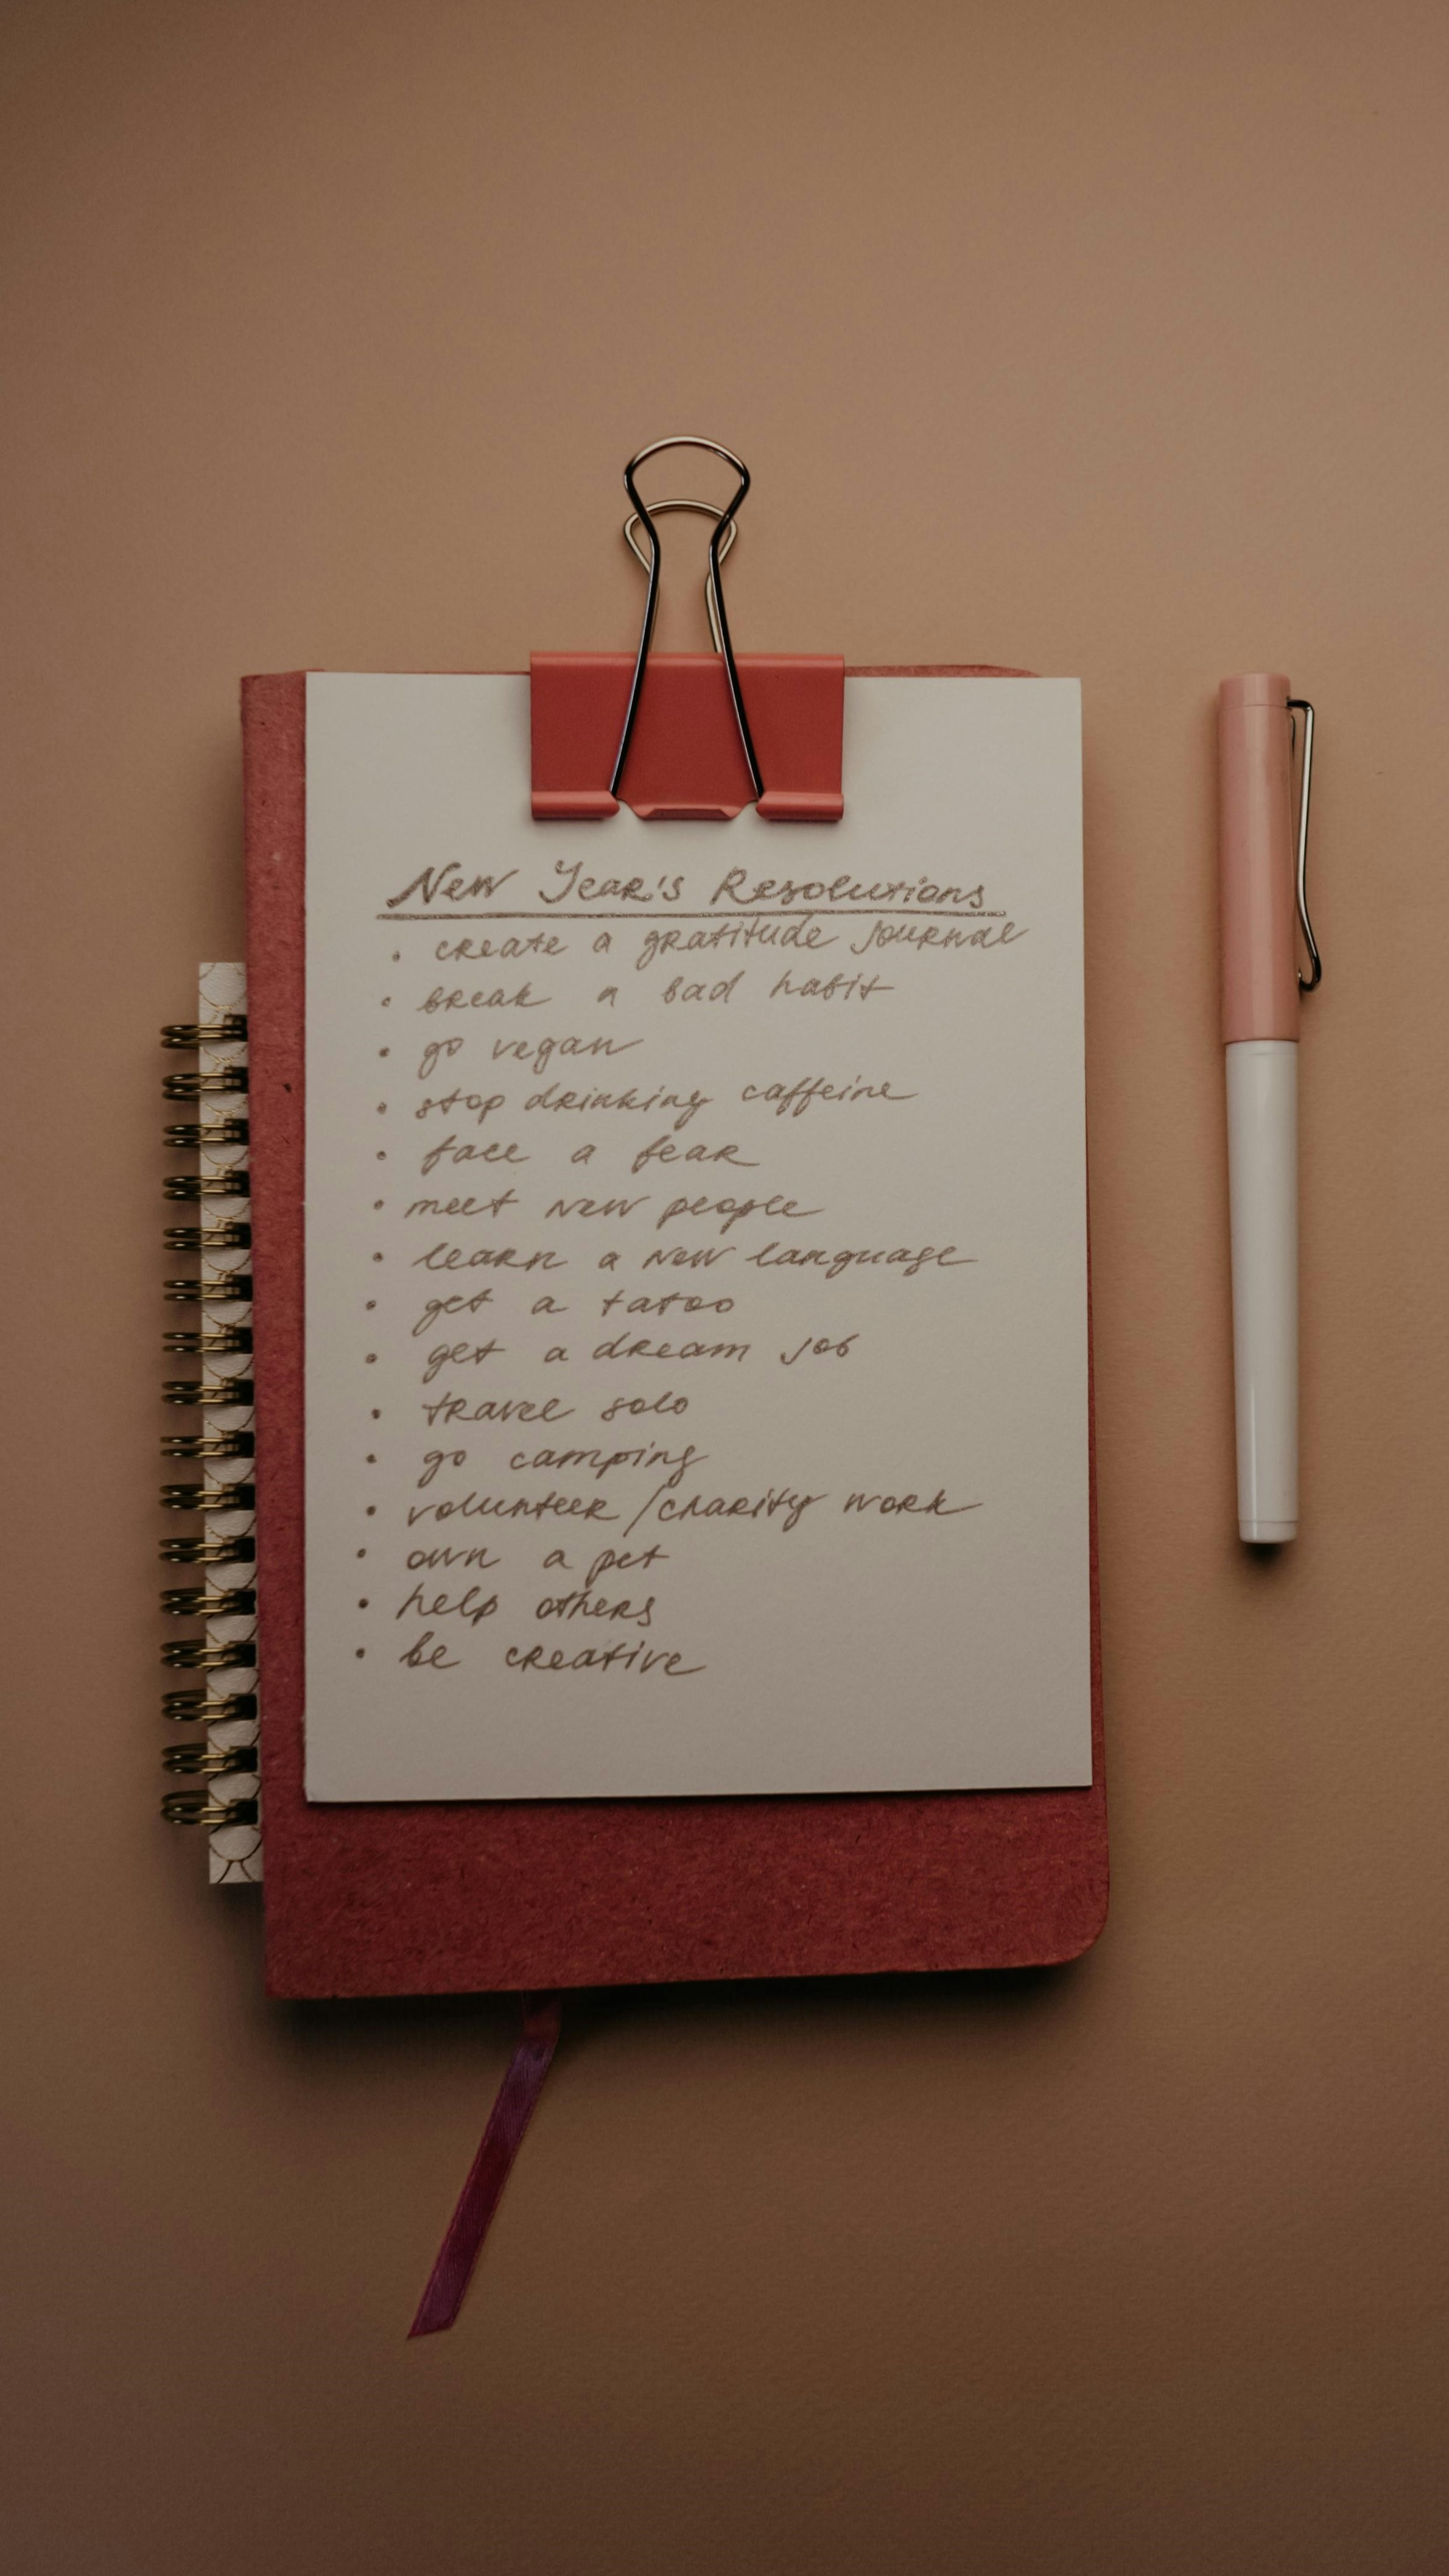 New Year's Resolutions
· create a gratitude journal
· break a bad habit
· go vegan
· stop drinking caffeine
· face a fear
· meet new people
· learn a new language
· get a tatoo
· get a dream job
· travel solo
· go camping
· volunteer / charity work
· own a pet
· help others
· be creative